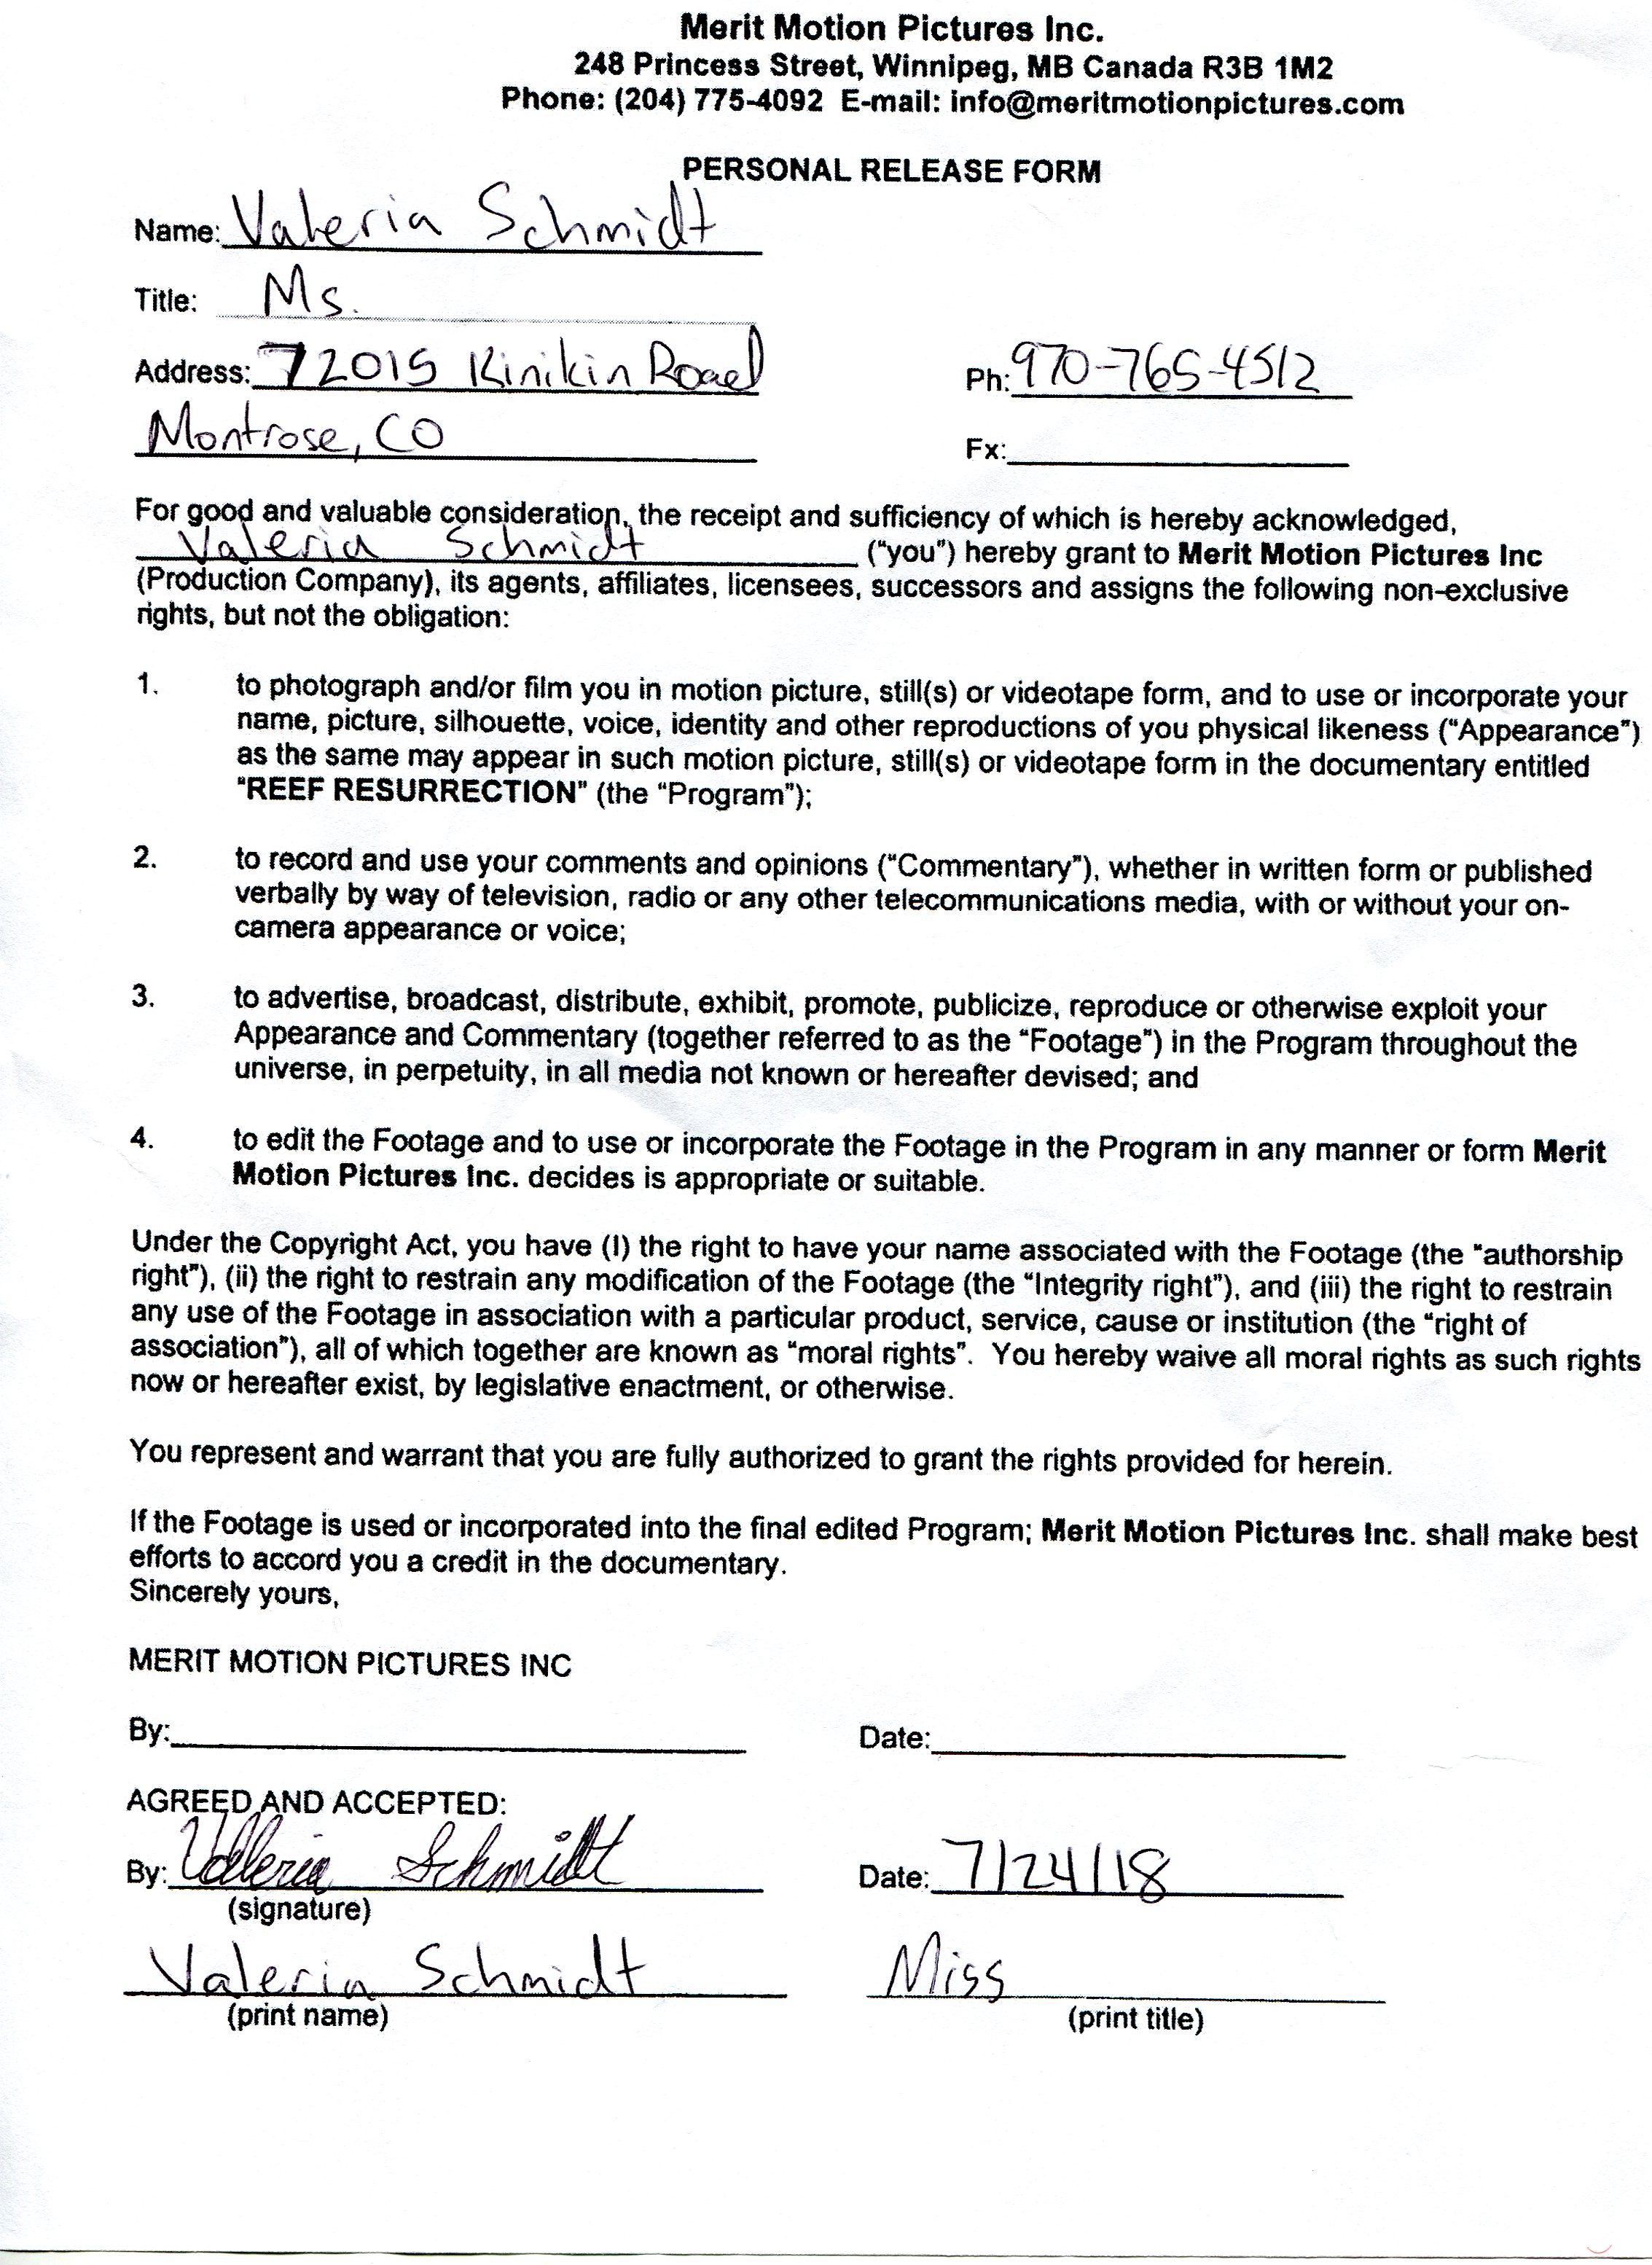 Merit Motion Pictures Inc.
248 Princess Street, Winnipeg, MB Canada R3B 1M2
Phone: (204) 775-4092 E-mail: info@meritmotionpictures.com
PERSONAL RELEASE FORM
Name: Valeria Schmidt
Title: Ms.
Address: 72015 Kinikin Road Ph: 970-765-4512
Montrose, CO Fx:
For good and valuable consideration, the receipt and sufficiency of which is hereby acknowledged,
Valeria Schmidt ("you") hereby grant to Merit Motion Pictures Inc
(Production Company), its agents, affiliates, licensees, successors and assigns the following non-exclusive
rights, but not the obligation:
1. to photograph and/or film you in motion picture, still(s) or videotape form, and to use or incorporate your
name, picture, silhouette, voice, identity and other reproductions of you physical likeness ("Appearance")
as the same may appear in such motion picture, still(s) or videotape form in the documentary entitled
"REEF RESURRECTION" (the "Program");
2. to record and use your comments and opinions ("Commentary"), whether in written form or published
verbally by way of television, radio or any other telecommunications media, with or without your on-
camera appearance or voice;
3. to advertise, broadcast, distribute, exhibit, promote, publicize, reproduce or otherwise exploit your
Appearance and Commentary (together referred to as the "Footage") in the Program throughout the
universe, in perpetuity, in all media not known or hereafter devised; and
4. to edit the Footage and to use or incorporate the Footage in the Program in any manner or form Merit
Motion Pictures Inc. decides is appropriate or suitable.
Under the Copyright Act, you have (I) the right to have your name associated with the Footage (the "authorship
right"), (ii) the right to restrain any modification of the Footage (the "Integrity right"), and (iii) the right to restrain
any use of the Footage in association with a particular product, service, cause or institution (the "right of
association"), all of which together are known as "moral rights". You hereby waive all moral rights as such rights
now or hereafter exist, by legislative enactment, or otherwise.
You represent and warrant that you are fully authorized to grant the rights provided for herein.
If the Footage is used or incorporated into the final edited Program; Merit Motion Pictures Inc. shall make best
efforts to accord you a credit in the documentary.
Sincerely yours,
MERIT MOTION PICTURES INC
By: Date:
AGREED AND ACCEPTED:
By: Valeria Schmidt Date: 7/24/18
(signature)
Valeria Schmidt Miss
(print name) (print title)